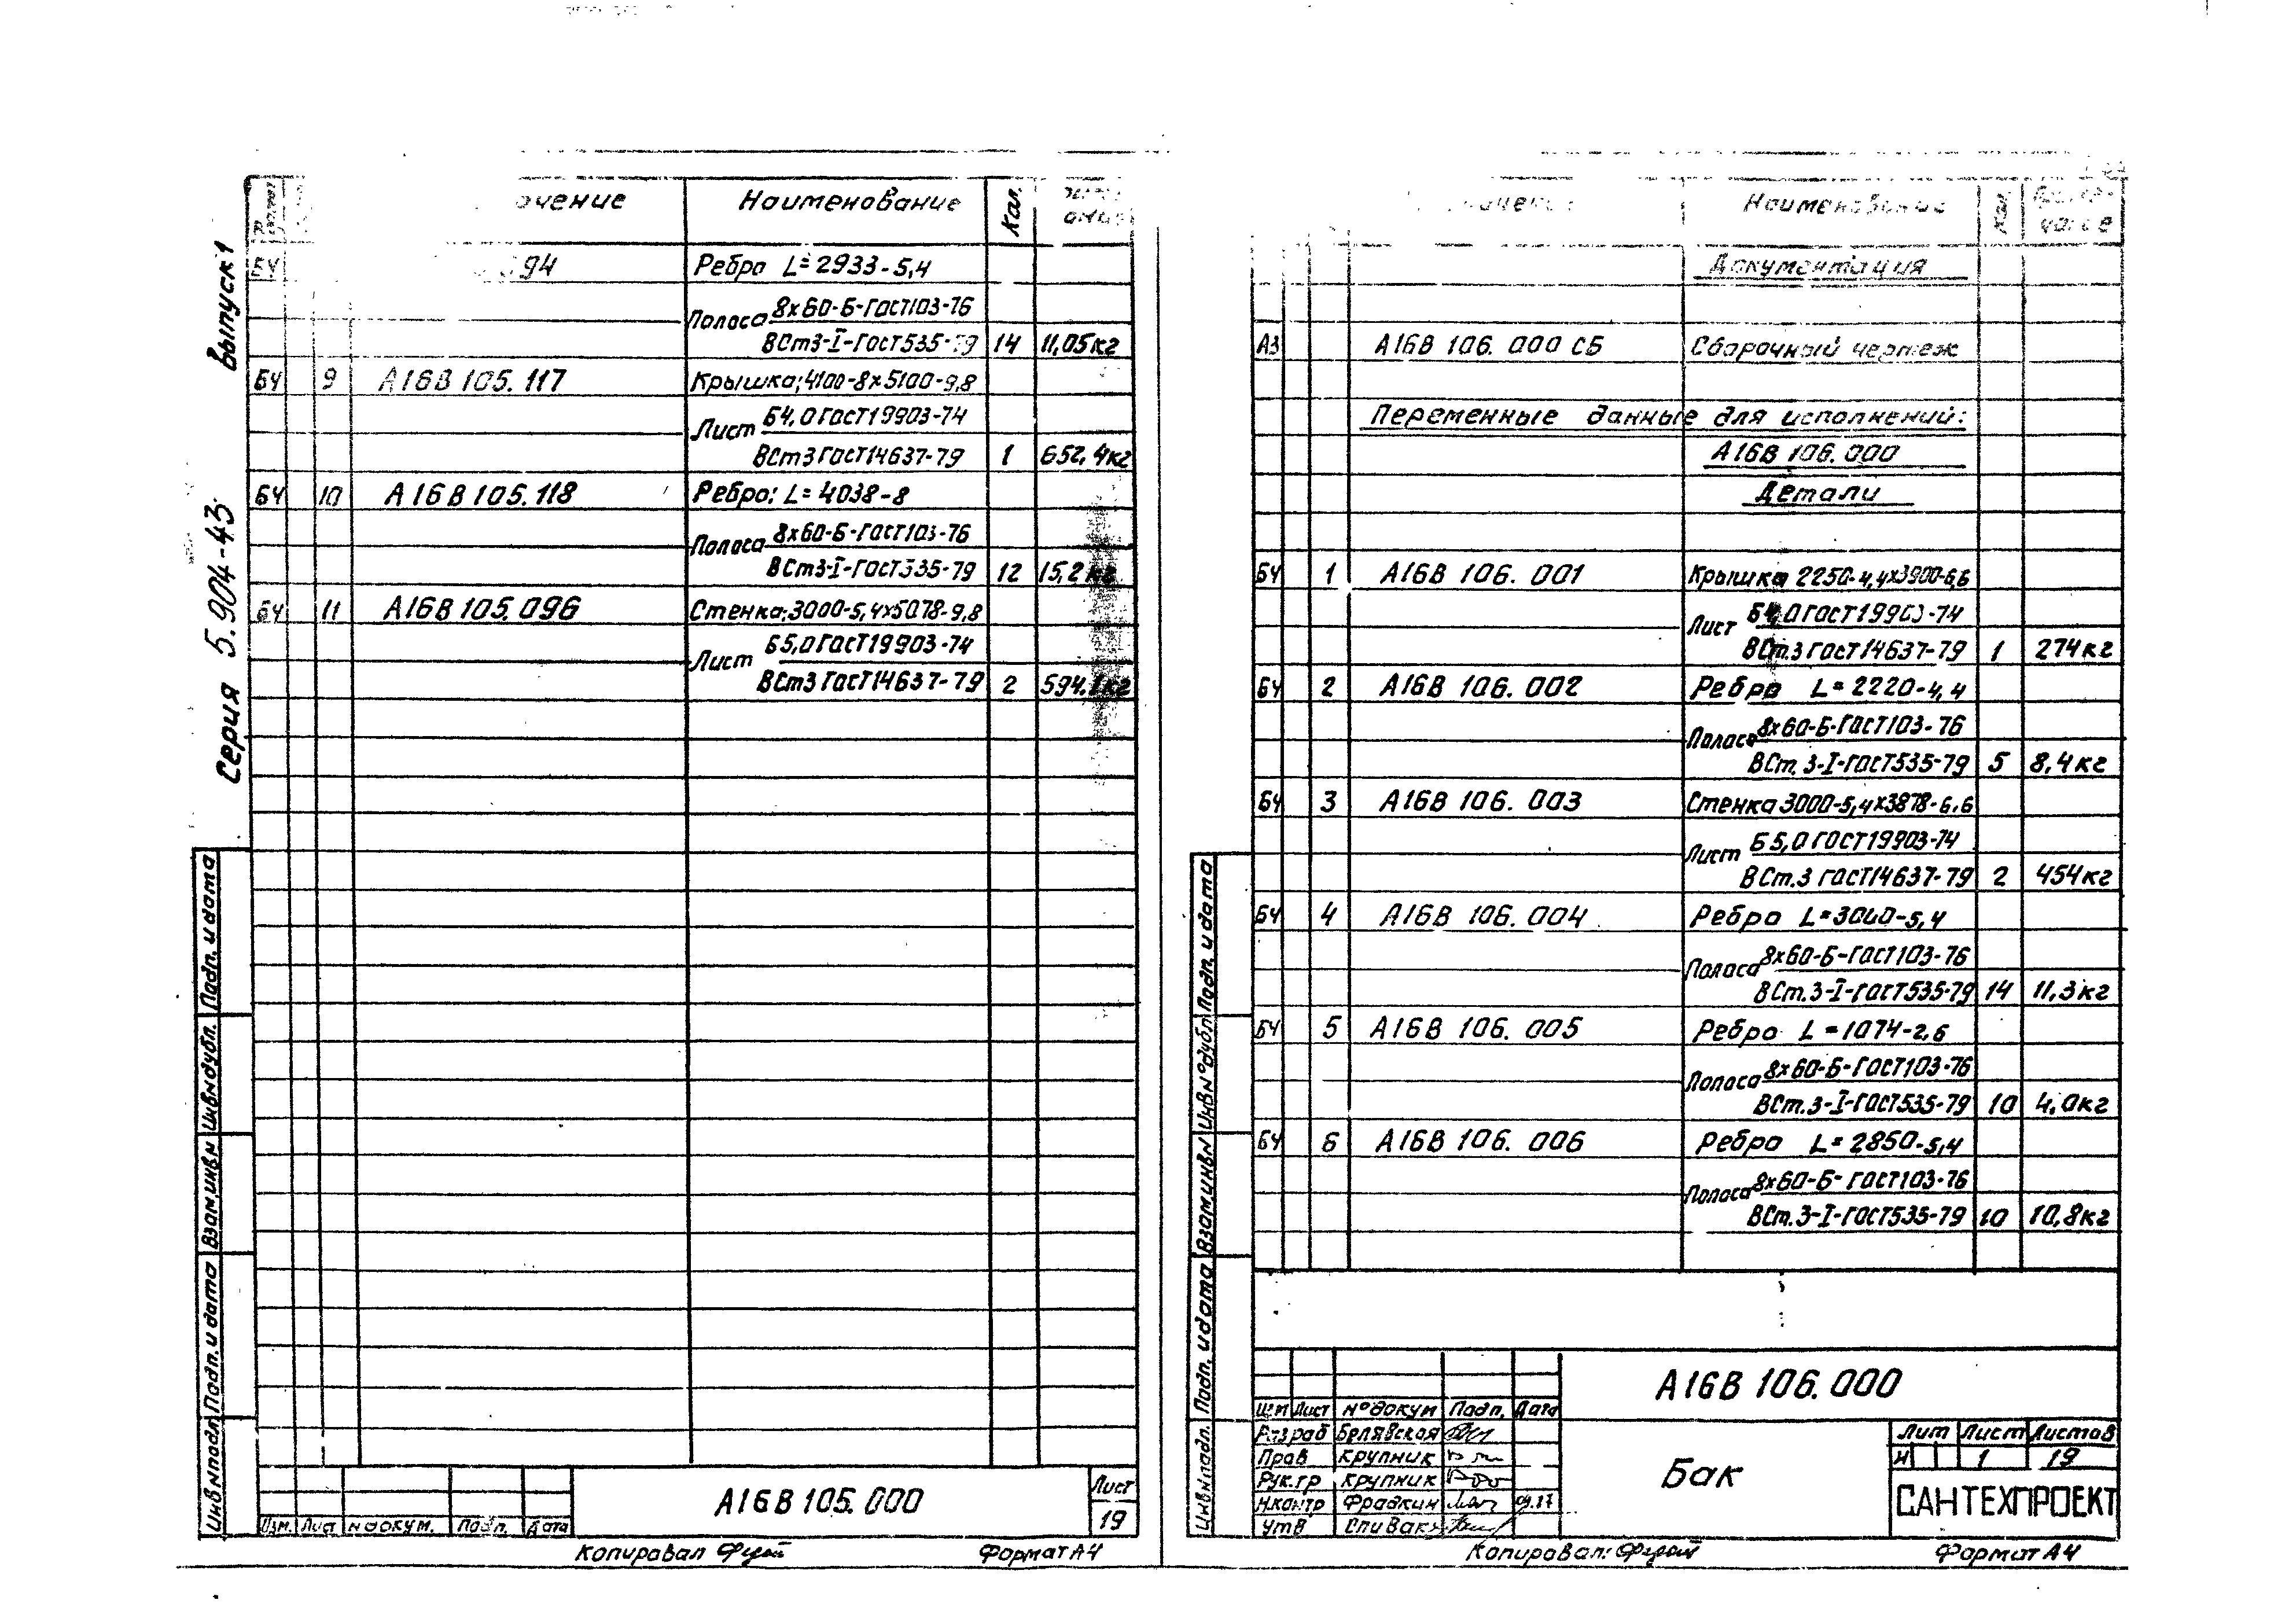 Серия 5.904-43 Выпуск 1
Наименование Кол.
БЧ 94 Ребро L=2933-5,4
Полоса 8х60-Б-ГОСТ103-76
ВСт3-I-ГОСТ535-79 14 11,05кг
БЧ 9 А16В 105.117 Крышка; 4100-8х5100-9,8
Лист Б4,0 ГОСТ19903-74
ВСт3 ГОСТ14637-79 1 652,4кг
БЧ 10 А16В 105.118 Ребро: L=4038-8
Полоса 8х60-Б-ГОСТ103-76
ВСт3-I-ГОСТ535-79 12 15,2кг
БЧ 11 А16В 105.096 Стенка; 3000-5,4х5078-9,8
Лист Б5,0 ГОСТ19903-74
ВСт3 ГОСТ14637-79 2 594,1кг
Инв№подл. Подп. и дата Взам.инв№ Инв№дубл. Подп. и дата
Изм. Лист №докум. Подп. Дата
А16В 105.000
Лист
19
Копировал
Формат А4
Наименование Кол.
Документация
А3 А16В 106.000 СБ Сборочный чертеж
Переменные данные для исполнений:
А16В 106.000
Детали
БЧ 1 А16В 106.001 Крышка 2250-4,4х3900-6,6
Лист Б4,0 ГОСТ19903-74
ВСт.3 ГОСТ14637-79 1 274кг
БЧ 2 А16В 106.002 Ребро L=2220-4,4
Полоса 8х60-Б-ГОСТ103-76
ВСт.3-I-ГОСТ535-79 5 8,4кг
БЧ 3 А16В 106.003 Стенка 3000-5,4х3878-6,6
Лист Б5,0 ГОСТ19903-74
ВСт.3 ГОСТ14637-79 2 454кг
БЧ 4 А16В 106.004 Ребро L=3000-5,4
Полоса 8х60-Б-ГОСТ103-76
ВСт.3-I-ГОСТ535-79 14 11,3кг
БЧ 5 А16В 106.005 Ребро L=1074-2,6
Полоса 8х60-Б-ГОСТ103-76
ВСт.3-I-ГОСТ535-79 10 4,0кг
БЧ 6 А16В 106.006 Ребро L=2850-5,4
Полоса 8х60-Б-ГОСТ103-76
ВСт.3-I-ГОСТ535-79 10 10,8кг
Инв№подл. Подп. и дата Взам.инв№ Инв№дубл Подп. и дата
А16В 106.000
Изм Лист №докум Подп. Дата
Разраб Белявская
Пров Крупник
Рук.гр Крупник
Н.контр Фрадкин
Утв Спивак
Бак
Лит Лист Листов
И 1 19
САНТЕХПРОЕКТ
Копировал:
Формат А4